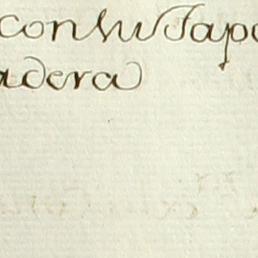 con su Tapa
adera